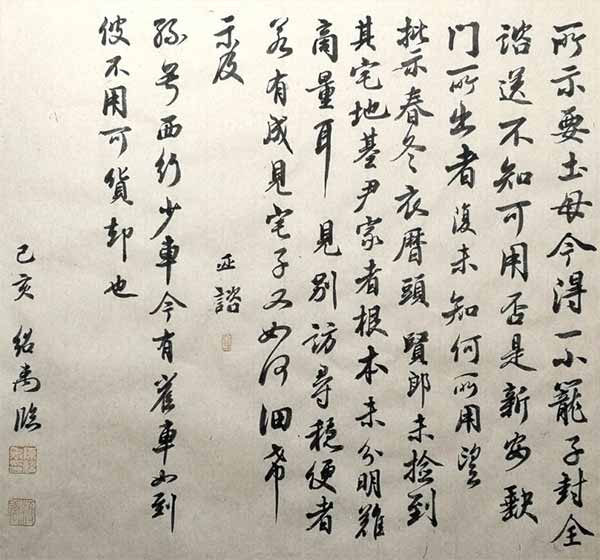 所示要土母今得一小籠子封全
諮送不知可用否是新安缺
門所出者復未知何所用望
批示春冬衣曆頭賢郎未撿到
其宅地基尹家者根本未分明難
商量耳見別訪尋穩便者
若有成見宅子又如何細希
示及
諮
孫号西行少車今有崔車如到
彼不用可貨却也
己亥 紹臨